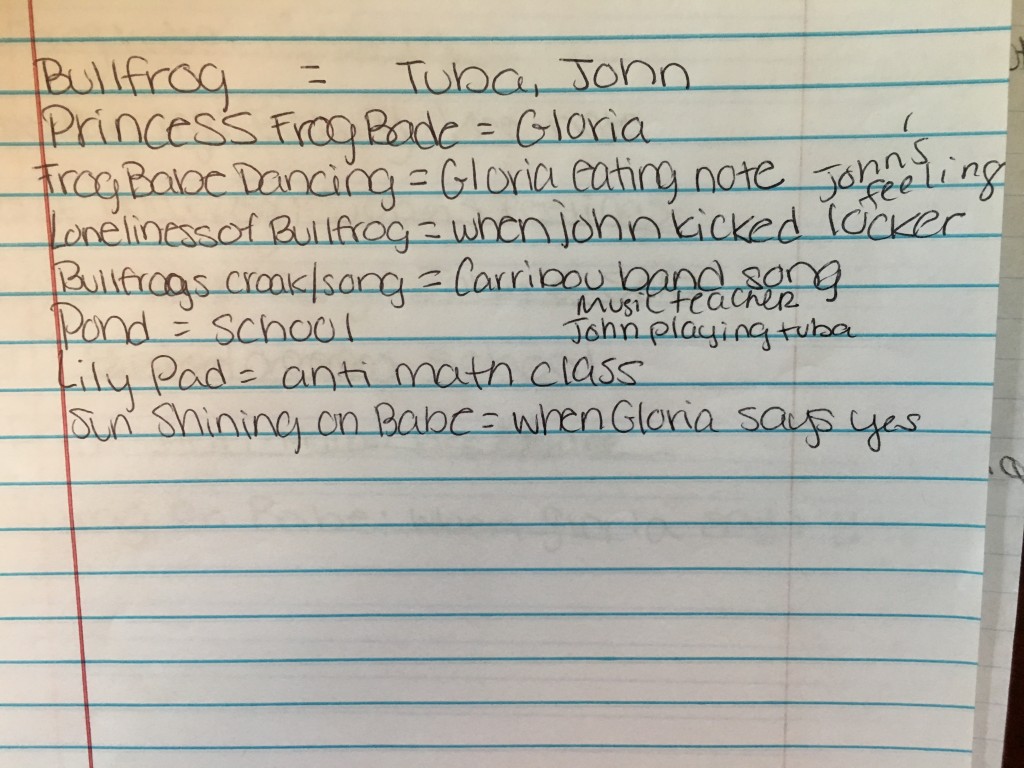 Bullfrog = Tuba, John
Princess Frog Bade = Gloria
Frog Babe Dancing = Gloria eating note John's feeling
Loneliness of Bullfrog = when john kicked locker
Bullfrogs croak/song = Carribou band song
Music teacher
Pond = school John playing tuba
Lily Pad = anti math class
Sun Shining on Babe = when Gloria says yes